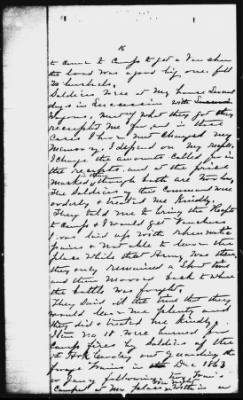 to come to Camp to get a Voucher
the load was a good big one, full
20 bushels.
Soldiers were at my house several
days in succession with
Wagons, most of what they got they
receipted me for, and in these
cases I have not charged my
Memory, I depend on my rcpts,
I charge the amounts called for in
the receipts, and at the prices
marked through both at
The Soldiers in this Command were
orderly & treated me Kindly.
They told me to bring the Rcpts
to Camp & I would get Vouchers
I was laid up with rheumatic
pains & not able to leave the
place while that Army was there,
they only remained a short time
and then moved back to where
the battle was fought,
They said at the time that they
would leave me plenty and
they did & treated me Kindly.
Item no 10 were burned for
Camp fires by Soldiers of the
York Cavalry out guarding the
forage Trains in the Dec 1863
or Jany following,
Camped at my place, within